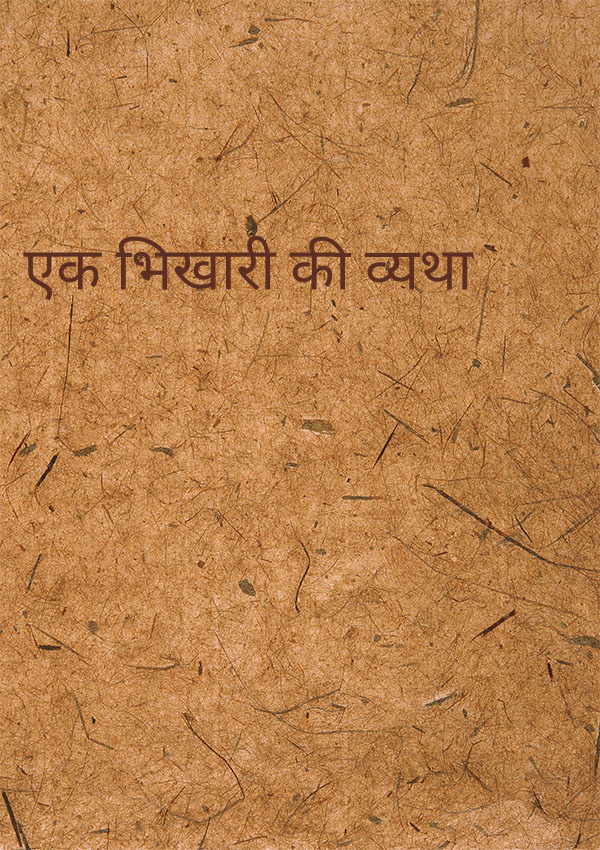 एक भिखारी की व्यथा